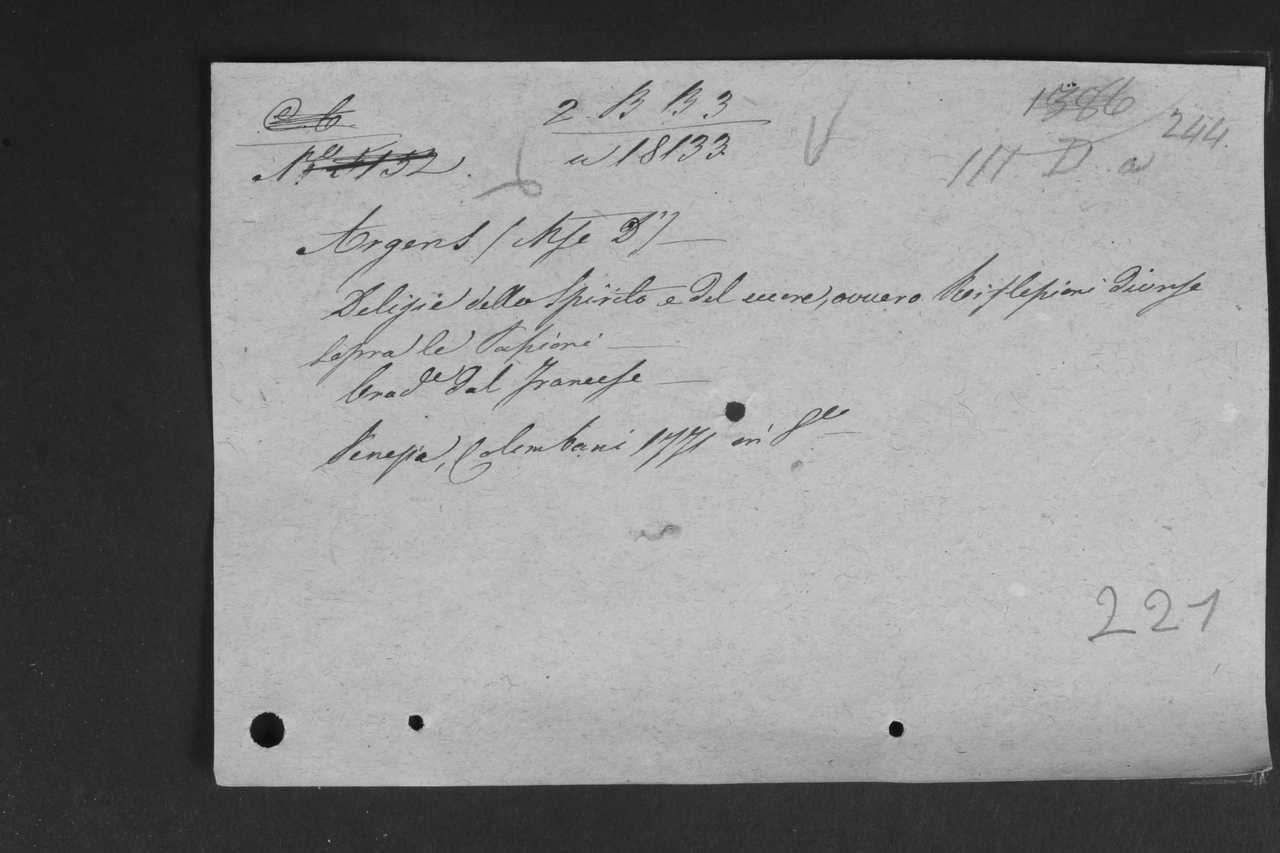 2. B B 3
a 18133
1386
244.
III. D. a
Argens (Mse D')
Delizie dello Spirito e del cuore, ovvero Riflessioni diverse
sopra le Passioni
trad.e dal Francese
Venezia, Colombani 1771 in 8º
221